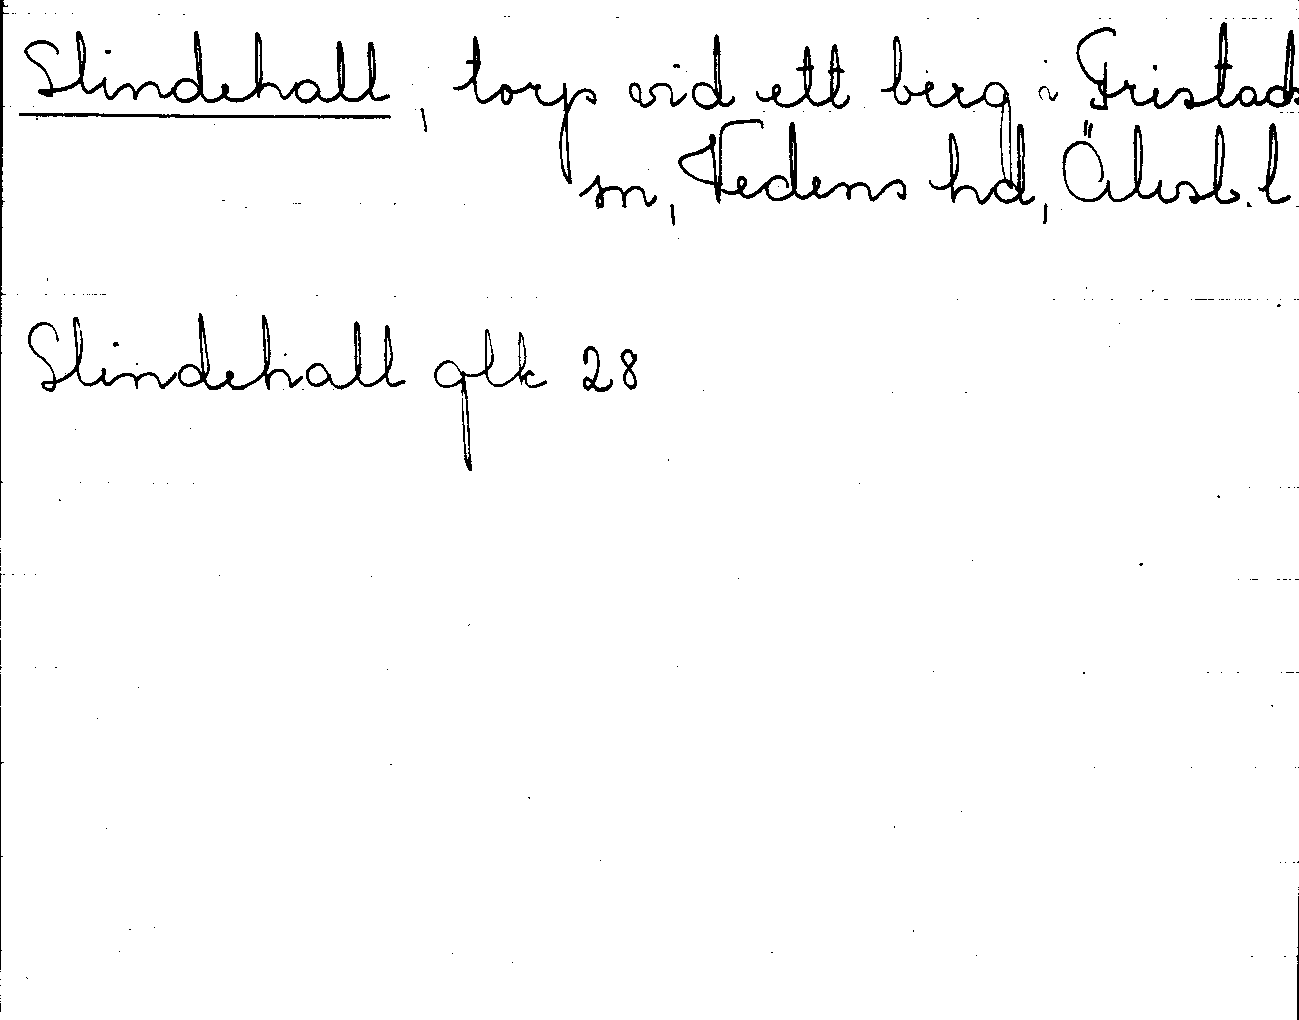 Slindehall, torp vid ett berg i Fristads
sn, Vedens hd, Älvsb. l
Slindehall glk 28